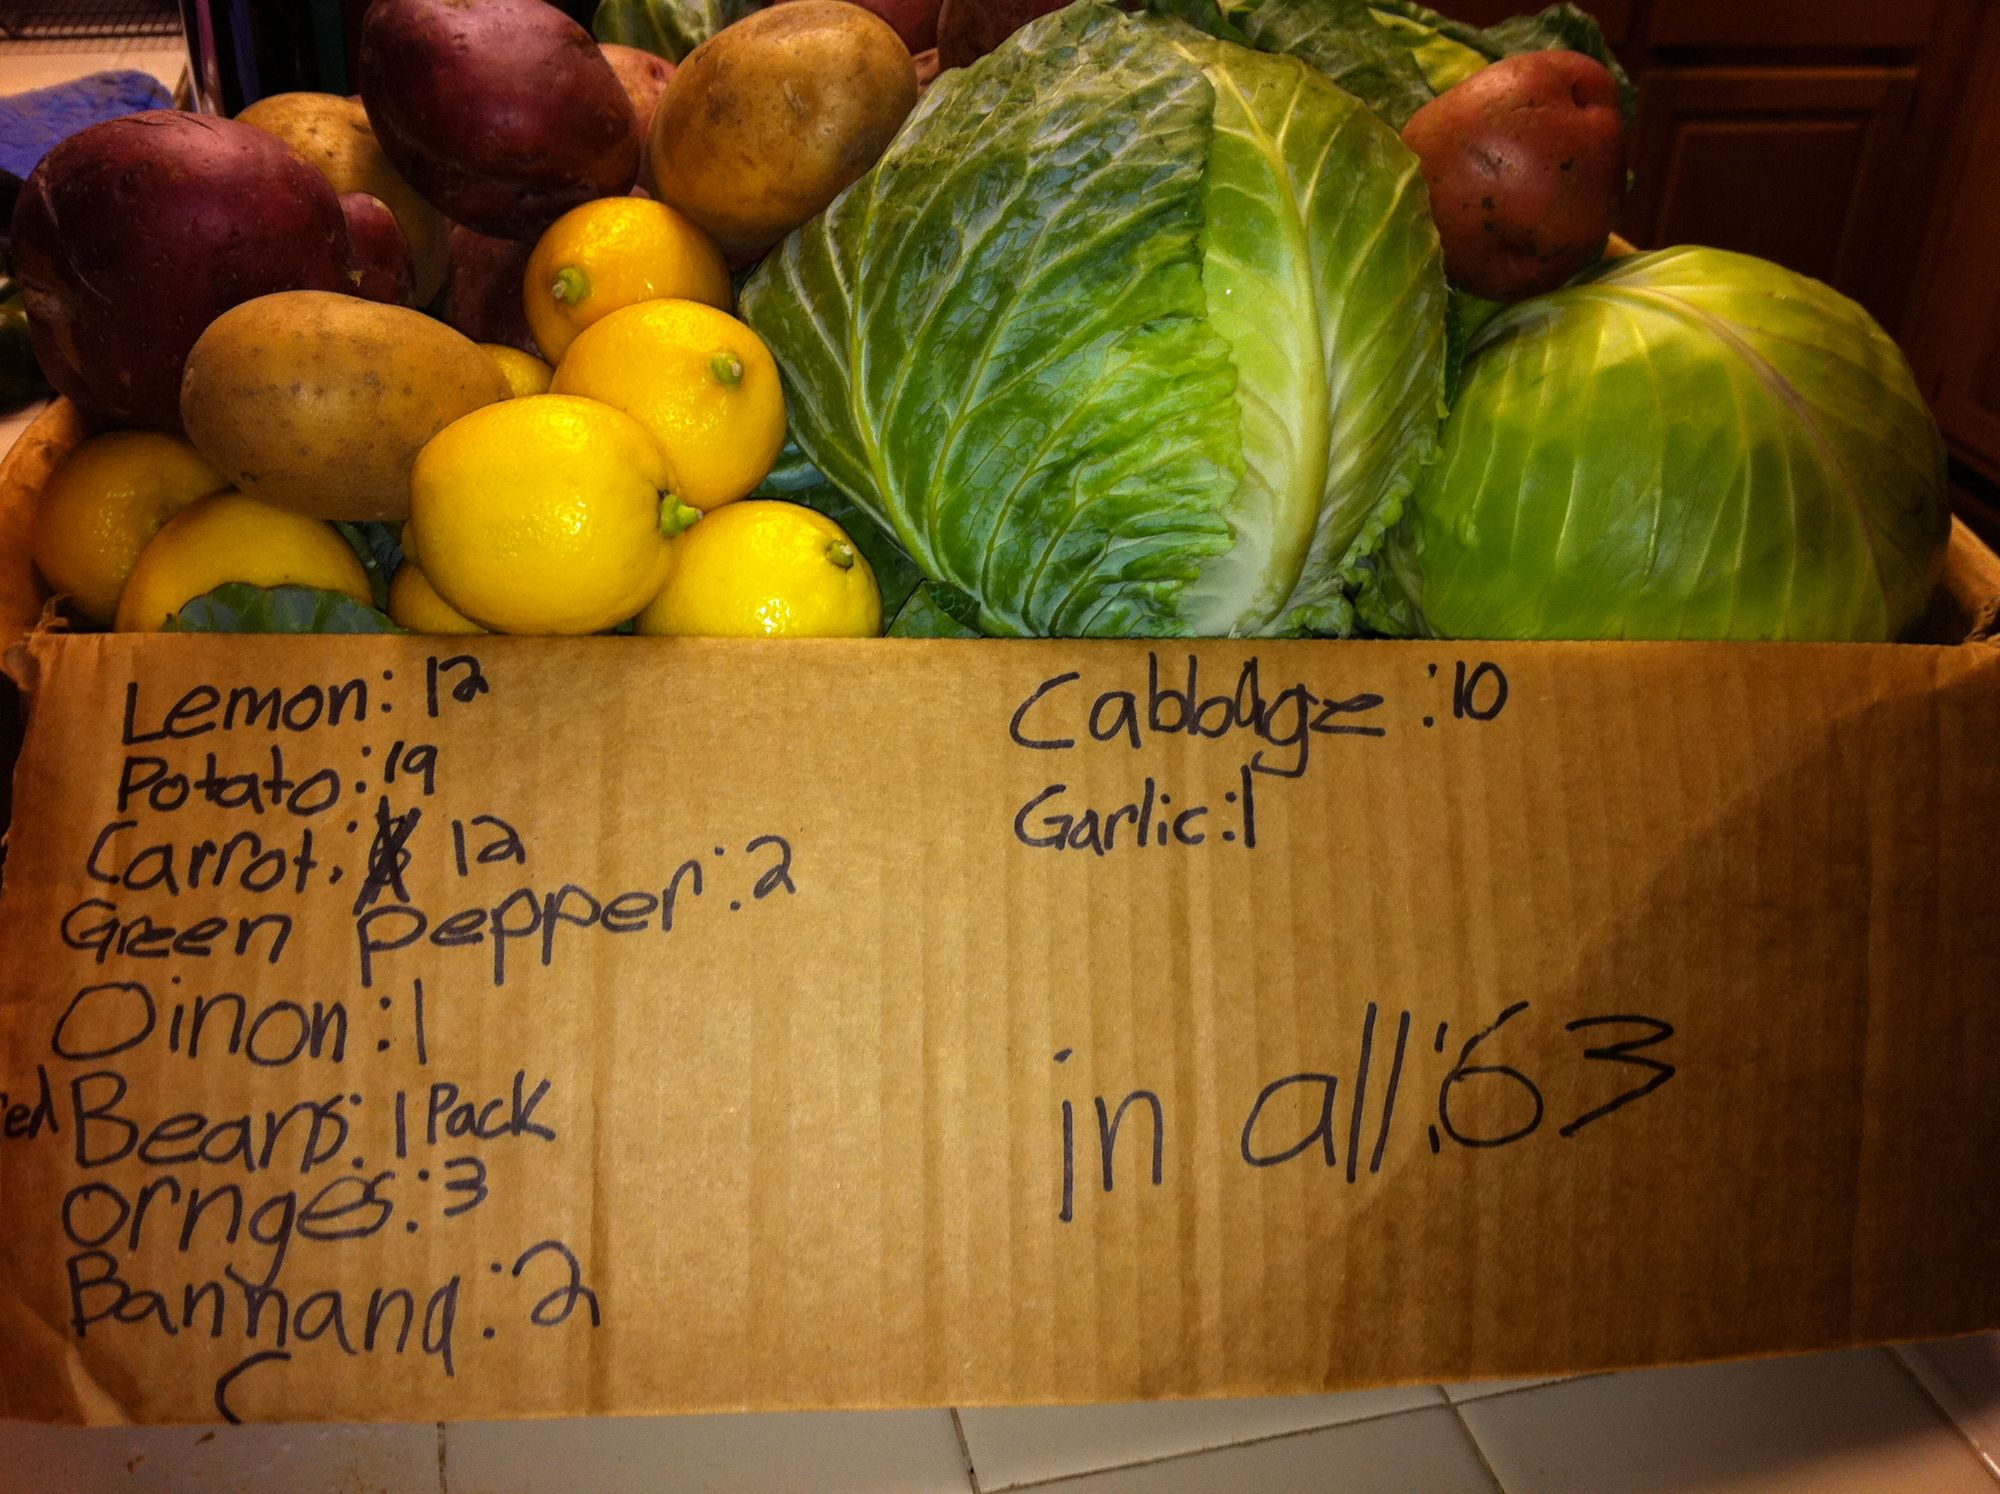 Lemon: 12
Potato: 19
Carrot: 12
Green pepper: 2
Oinon: 1
red Beans: 1 Pack
ornges: 3
Bannana: 2
Cabbage: 10
Garlic: 1
in all: 63